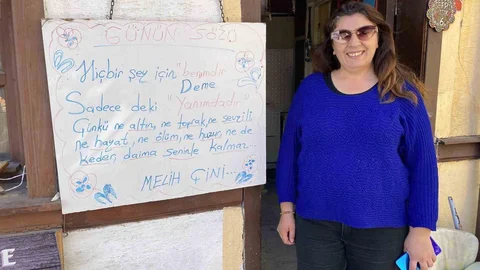 GÜNÜN SÖZÜ
Hiçbir şey için "benimdir"
Deme
Sadece deki "Yanımdadır"
Çünkü ne altın, ne toprak, ne sevgili
ne hayat, ne ölüm, ne huzur, ne de
keder daima seninle kalmaz.
MELİH ÇİNİ...
E